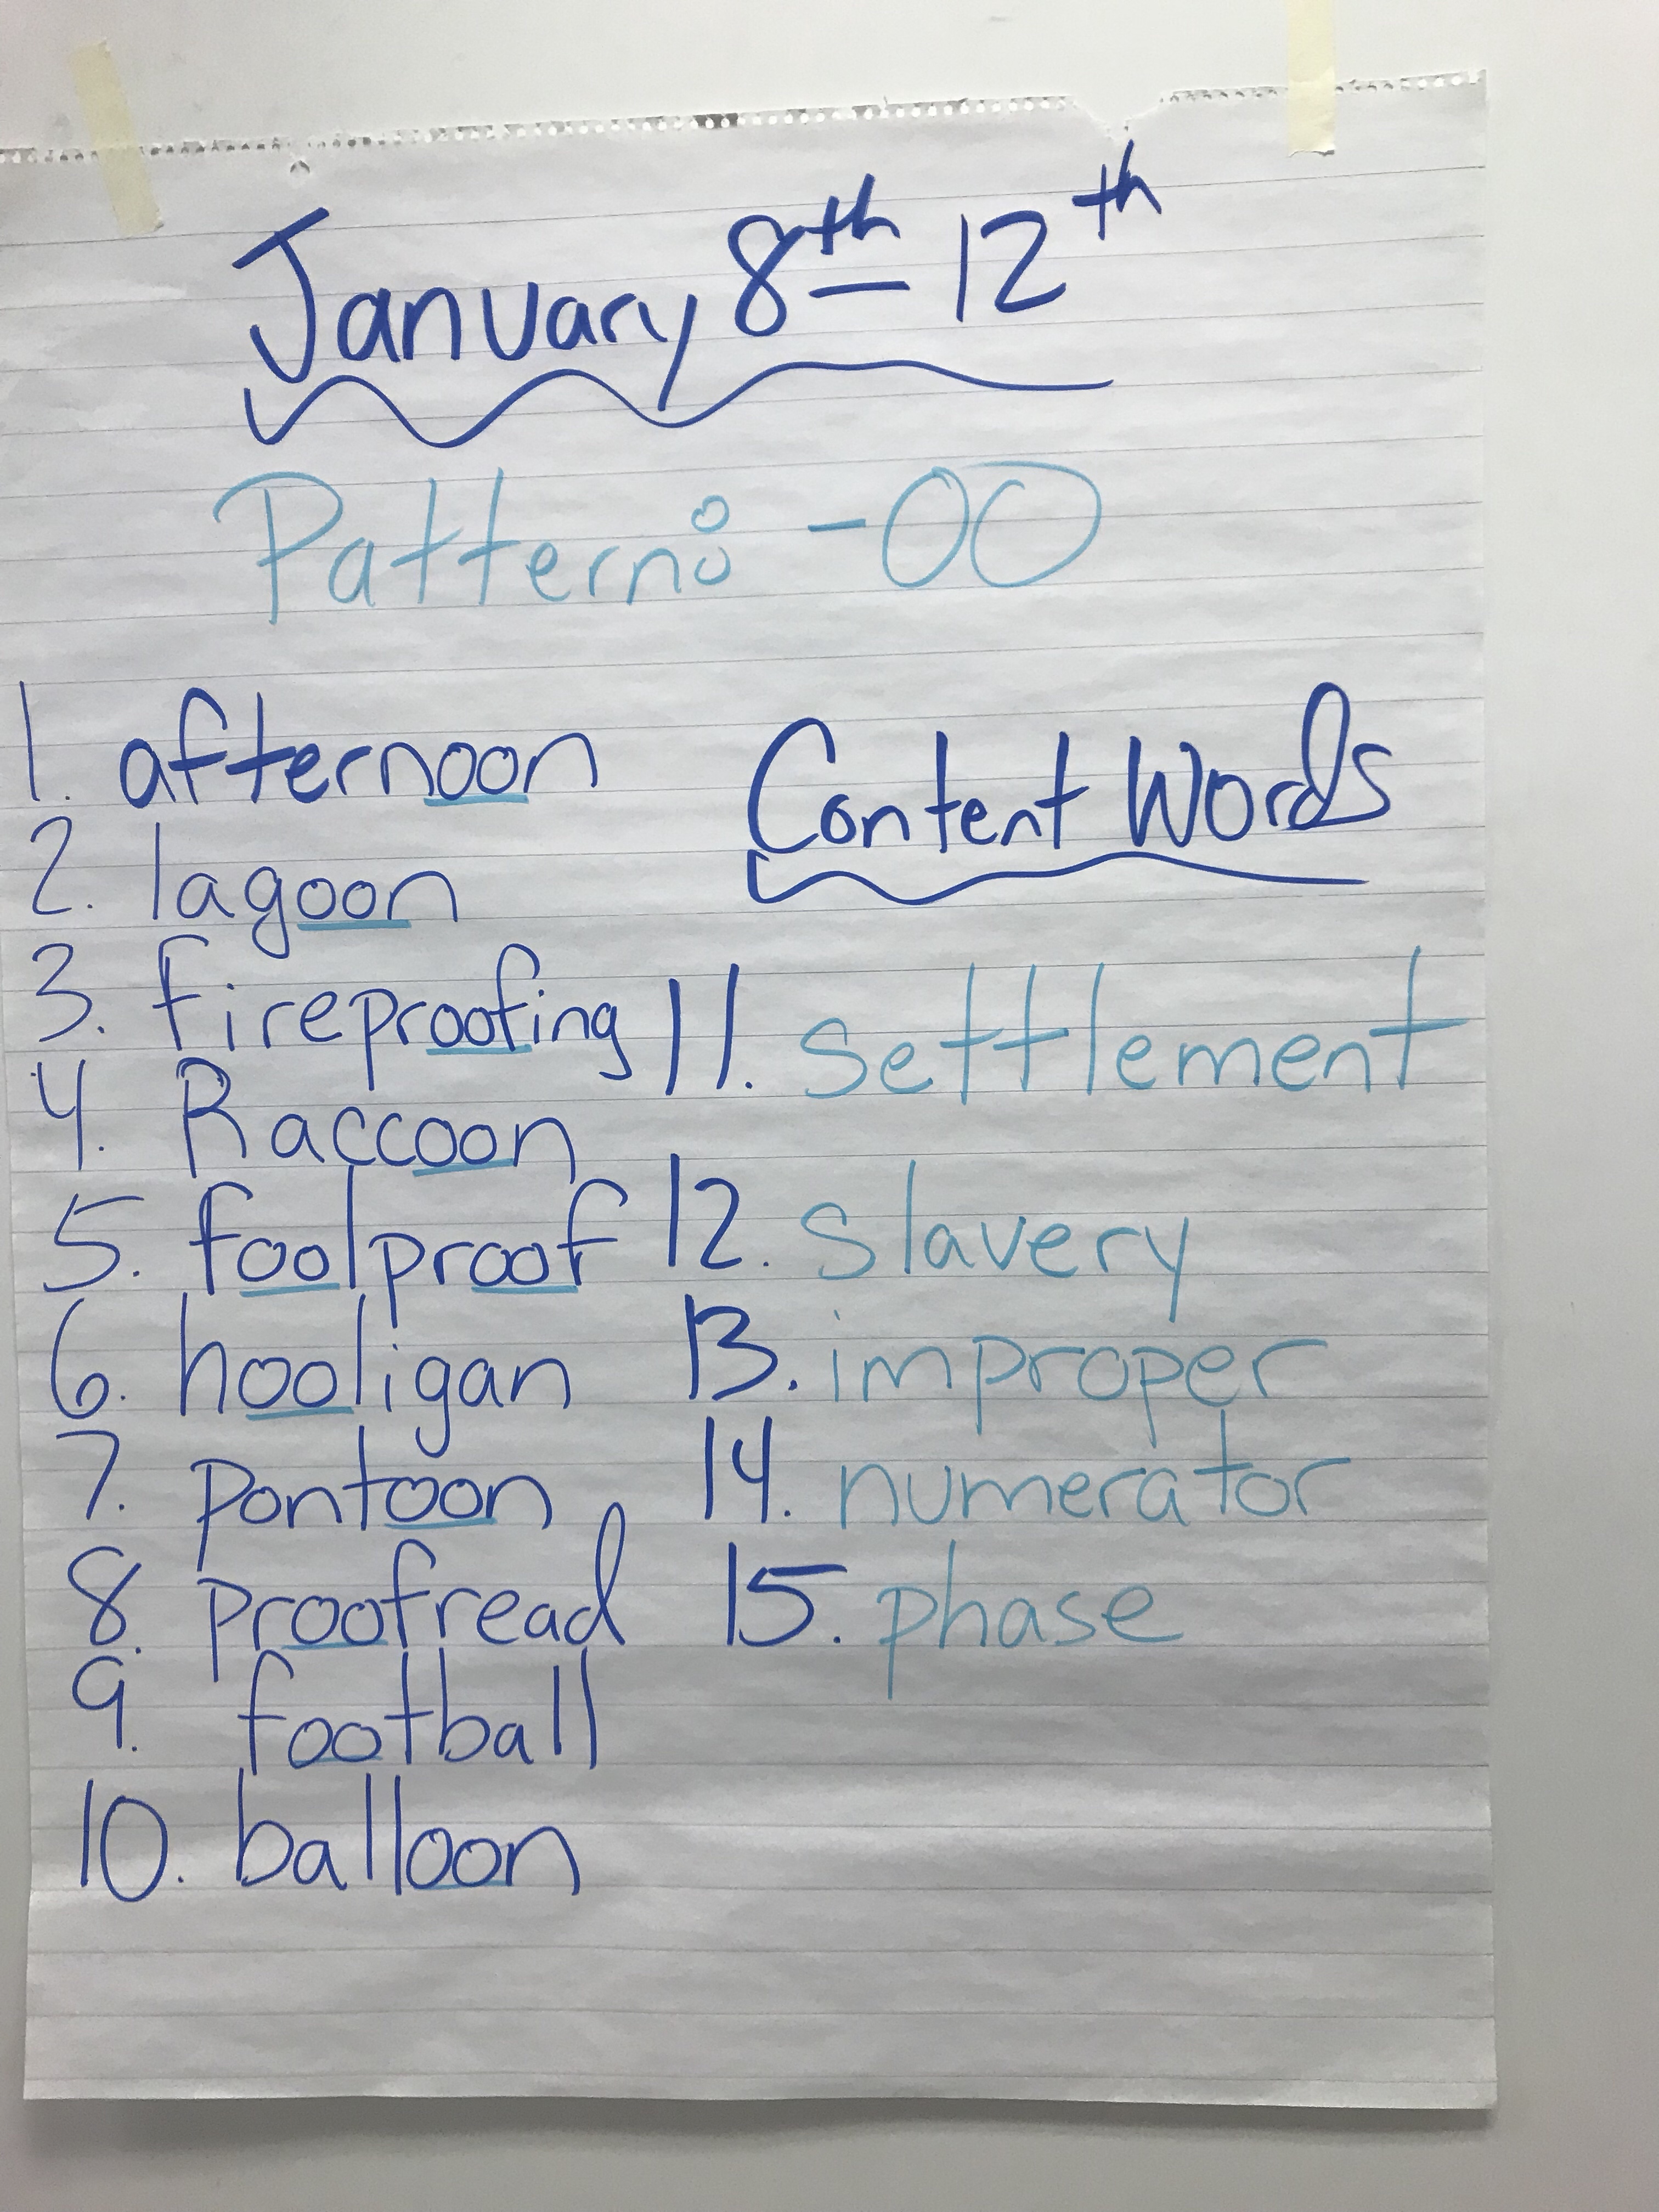 January 8th - 12th
Pattern: -oo
1. afternoon
2. lagoon
3. fireproofing
4. Raccoon
5. foolproof
6. hooligan
7. pontoon
8. proofread
9. football
10. balloon
Content Words
11. settlement
12. slavery
13. improper
14. numerator
15. phase